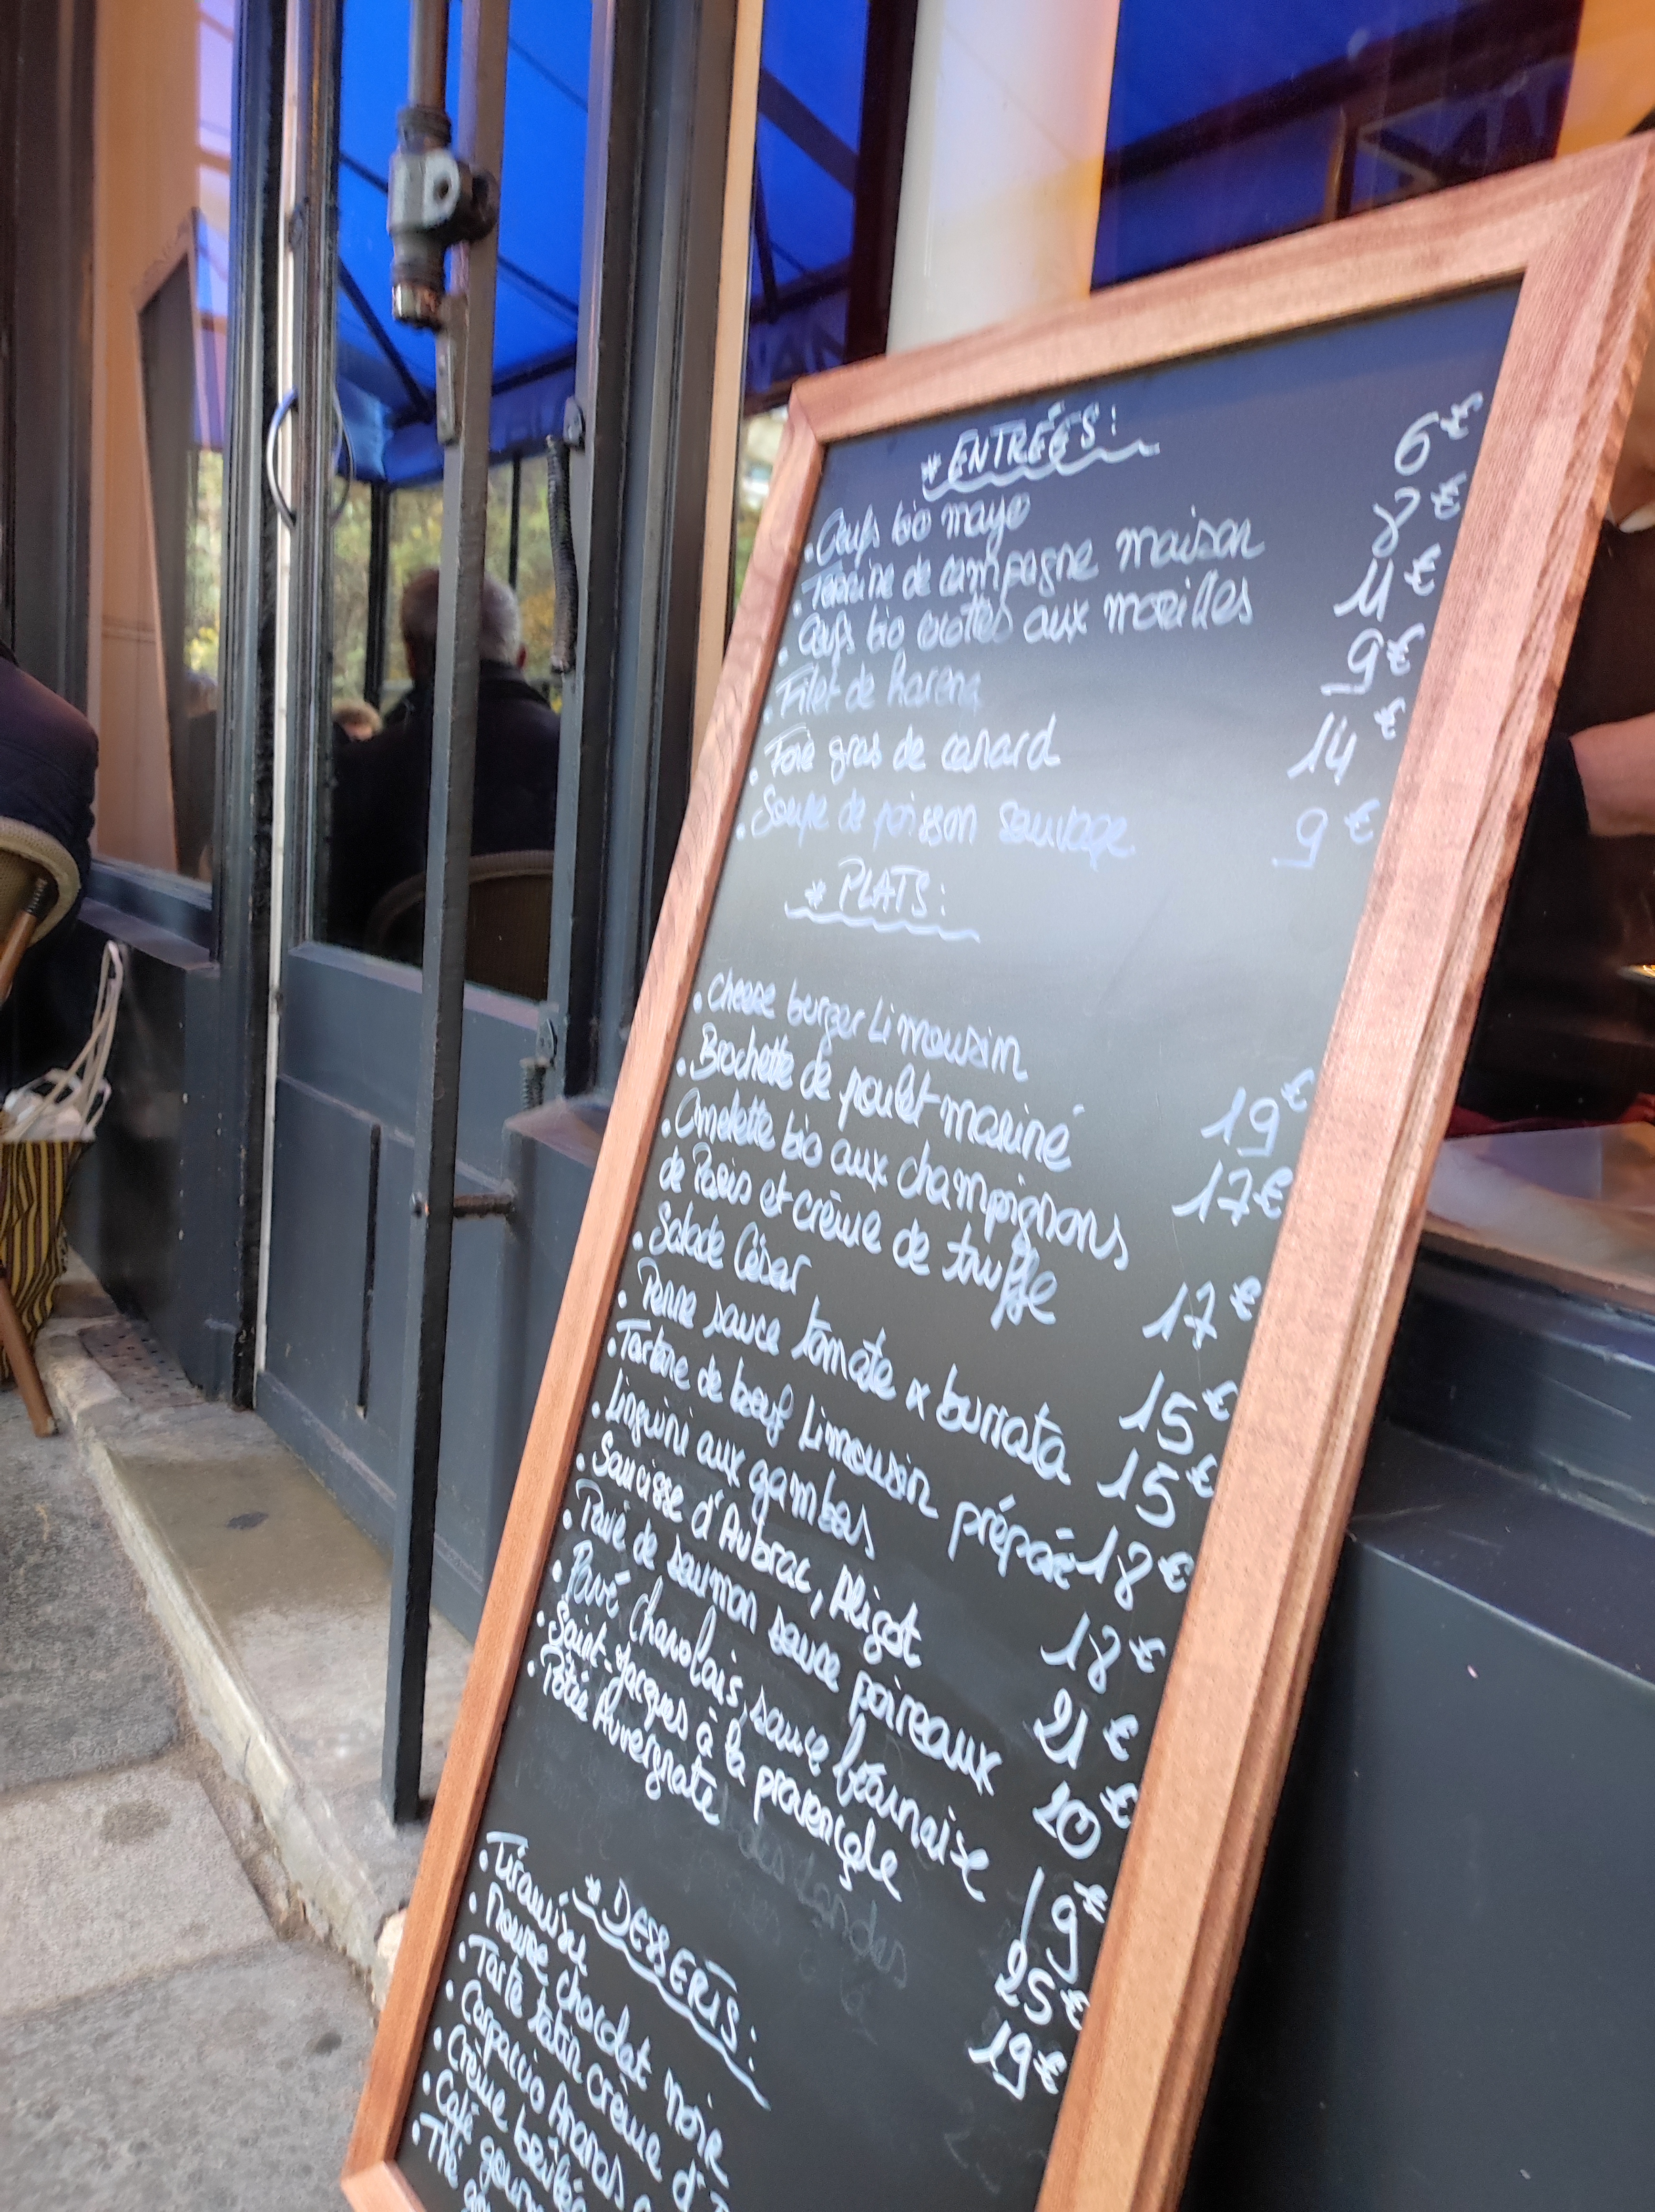 * ENTRÉES :
• Oeufs bio mayo 6€
• Terrine de campagne maison 8€
• Oeufs bio cocottes aux morilles 11€
• Filet de hareng 9€
• Foie gras de canard 14€
• Soupe de poisson sauvage 9€
* PLATS :
• Cheese burger Limousin 19€
• Brochette de poulet mariné 17€
• Omelette bio aux champignons
de Paris et crème de truffe 17€
• Salade César 15€
• Penne sauce tomate x burrata 15€
• Tartare de bœuf Limousin préparé 18€
• Linguini aux gambas 18€
• Saucisse d'Aubrac, Aligot 21€
• Pavé de saumon sauce poireaux 20€
• Pavé charolais, sauce béarnaise 19€
• Saint-Jacques à la provençale 25€
• Potée Auvergnate 19€
* DESSERTS :
• Tiramisu
• Mousse chocolat noir
• Tarte tatin crème d'
• Carpaccio Ananas
• Crème brûlée
• Café gourm
• Thé